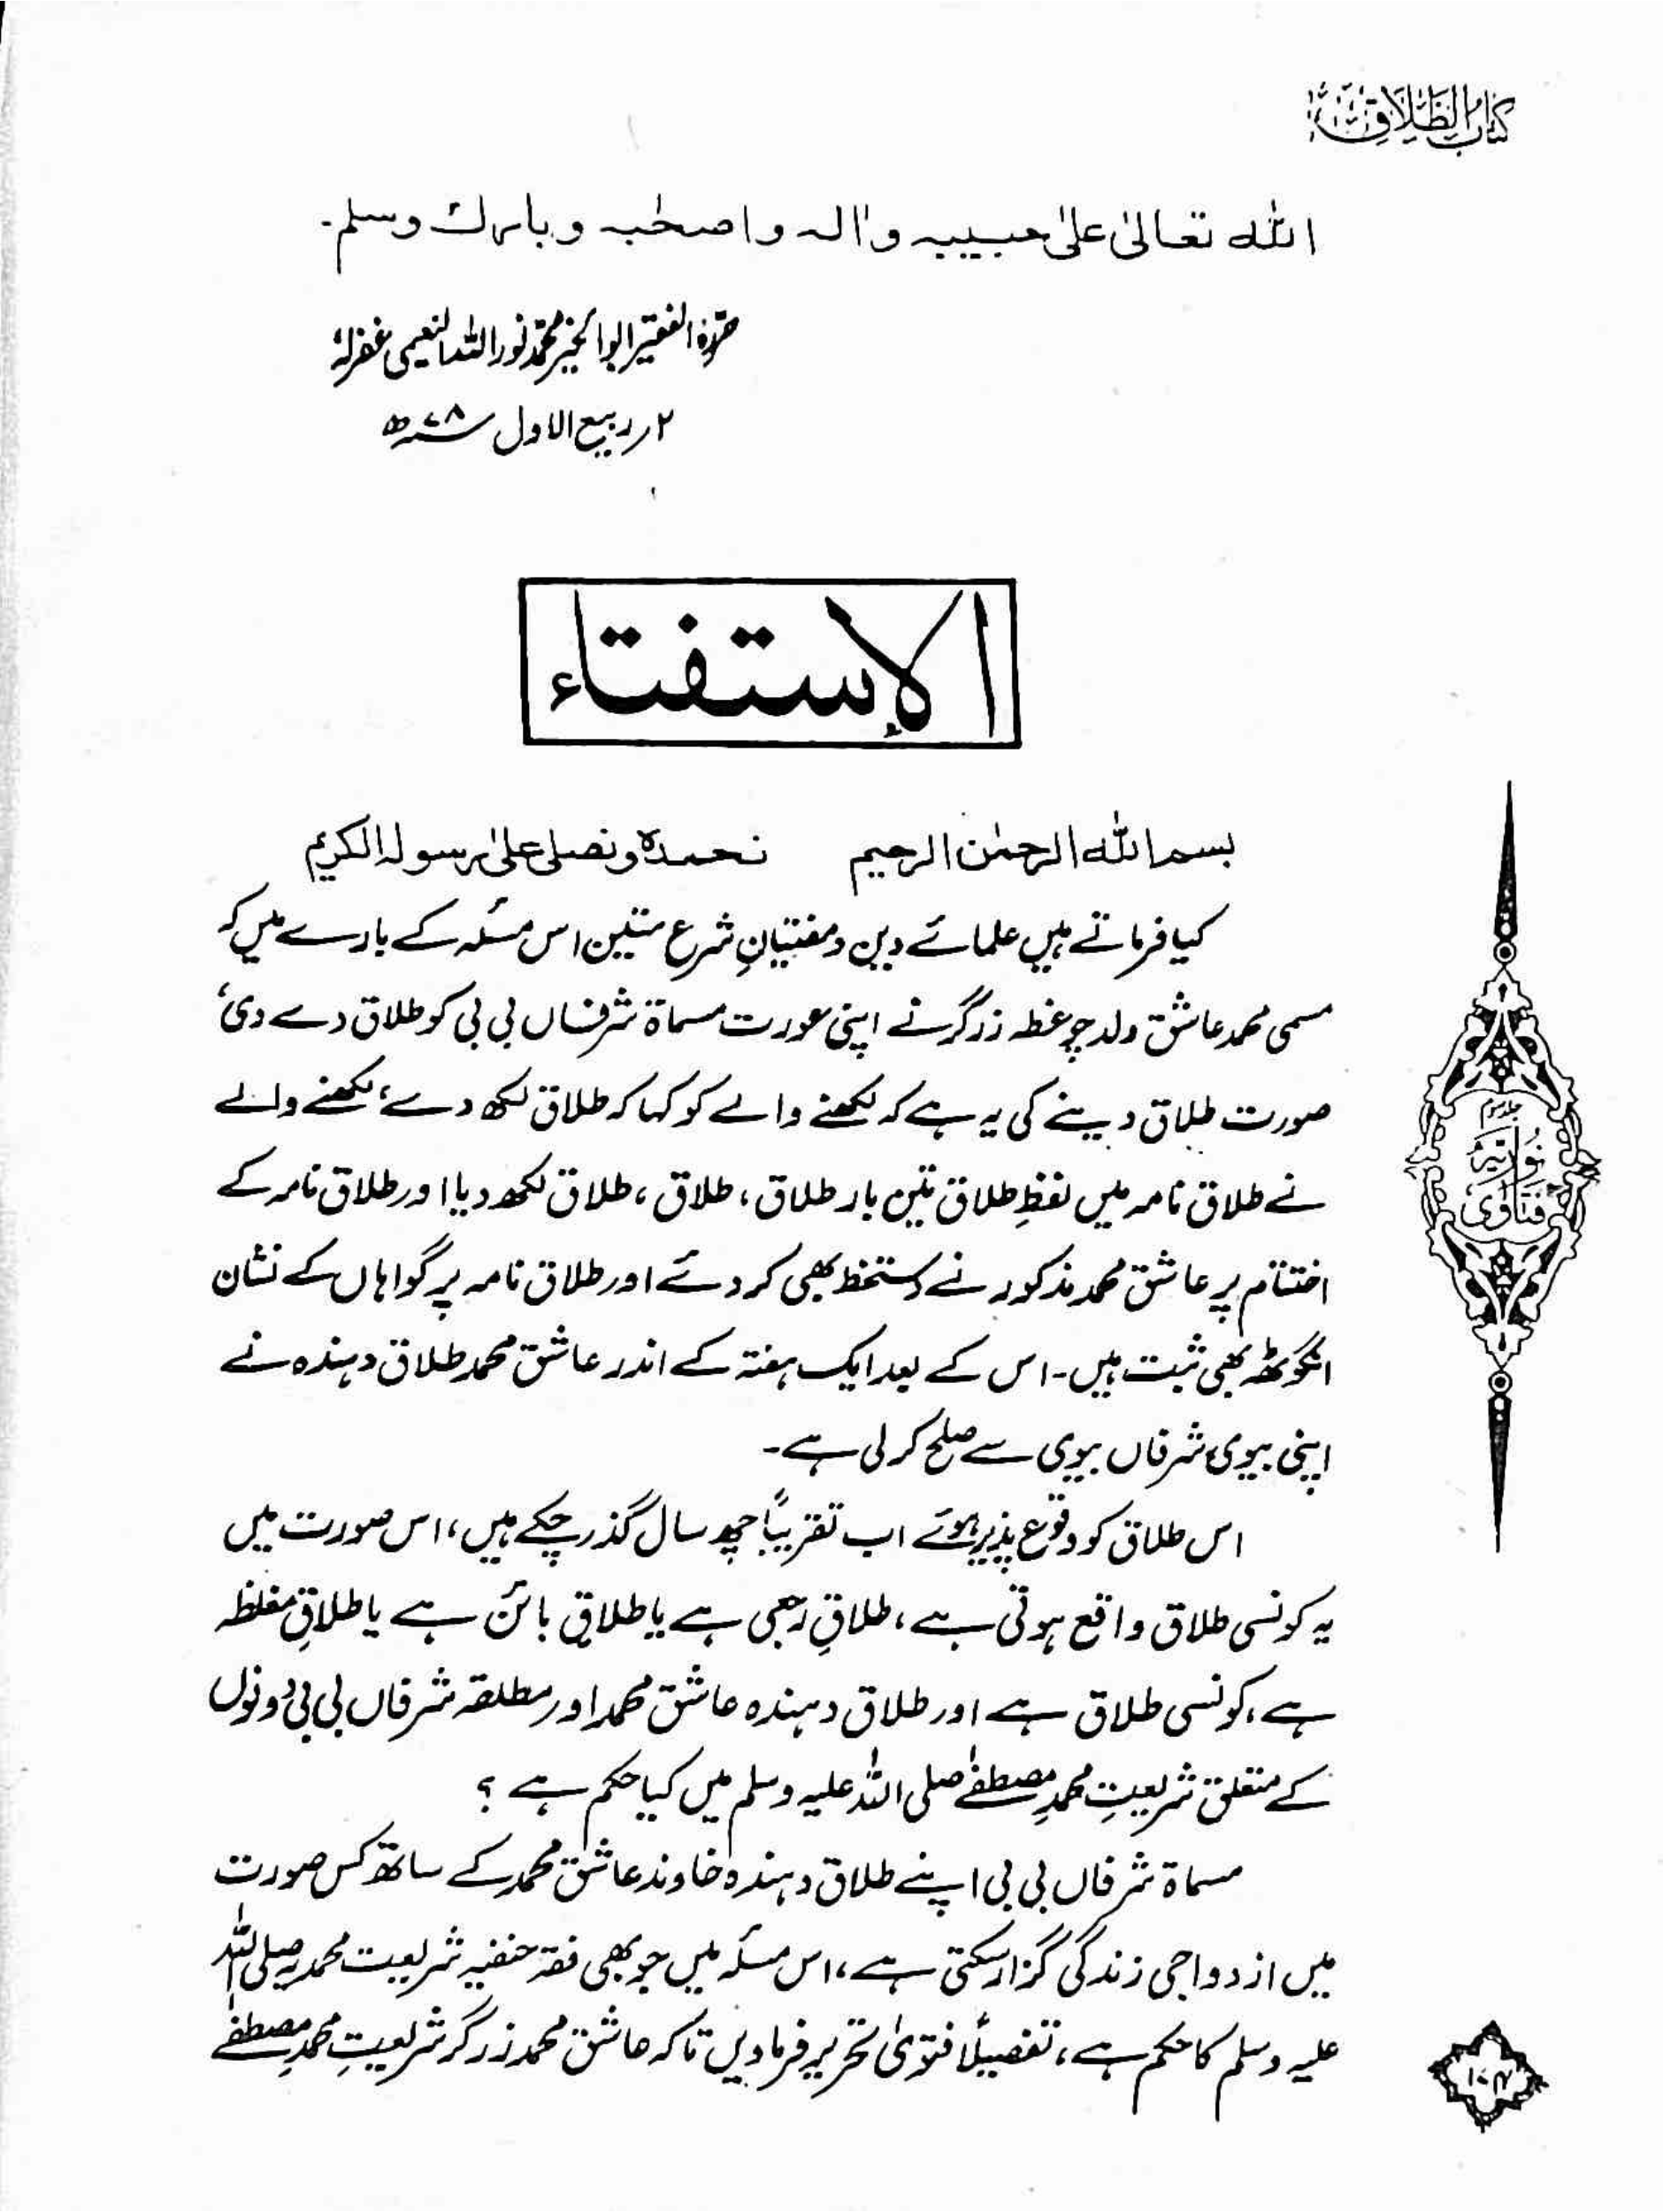 کتاب الطلاق
اللہ تعالیٰ علیٰ حبیبہ واٰلہ واصحٰبہ وبارك وسلم۔
حرّرہ الفقیر ابوالخیر محمد نور اللہ النعیمی غفرلہٗ
۲؍ ربیع الاول ۷۸ھ
الاستفتاء
بسم اللہ الرحمٰن الرحیم نحمدہ ونصلی علیٰ رسولہ الکریم
کیا فرماتے ہیں علمائے دین ومفتیانِ شرع متین اس مسئلہ کے بارے میں کہ
مسمی محمد عاشق ولد چوغطہ زرگر نے اپنی عورت مسماۃ شرفاں بی بی کو طلاق دے دی،
صورت طلاق دینے کی یہ ہے کہ لکھنے والے کو کہا کہ طلاق لکھ دے، لکھنے والے
نے طلاق نامہ میں لفظِ طلاق تین بار طلاق، طلاق، طلاق لکھ دیا اور طلاق نامہ کے
اختتام پر عاشق محمد مذکور نے دستخط بھی کر دئے اور طلاق نامہ پر گواہاں کے نشان
انگوٹھہ بھی ثبت ہیں۔ اس کے بعد ایک ہفتہ کے اندر عاشق محمد طلاق دہندہ نے
اپنی بیوی شرفاں بیوی سے صلح کر لی ہے۔
اس طلاق کو وقوع پذیر ہوئے اب تقریباً چھ سال گذر چکے ہیں، اس صورت میں
یہ کونسی طلاق واقع ہوتی ہے، طلاقِ رجعی ہے یا طلاقِ بائن ہے یا طلاقِ مغلظہ
ہے، کونسی طلاق ہے اور طلاق دہندہ عاشق محمد اور مطلقہ شرفاں بی بی دونوں
کے متعلق شریعتِ محمدِ مصطفےٰ صلی اللہ علیہ وسلم میں کیا حکم ہے ؟
مسماۃ شرفاں بی بی اپنے طلاق دہندہ خاوند عاشق محمد کے ساتھ کس صورت
میں ازدواجی زندگی گزار سکتی ہے، اس مسئلہ میں جو بھی فقہ حنفیہ شریعت محمدیہ صلی اللہ
علیہ وسلم کا حکم ہے، تفصیلاً فتویٰ تحریر فرما دیں تاکہ عاشق محمد زرگر شریعتِ محمدِ مصطفےٰ
جلد سوم
فتاویٰ نوریہ